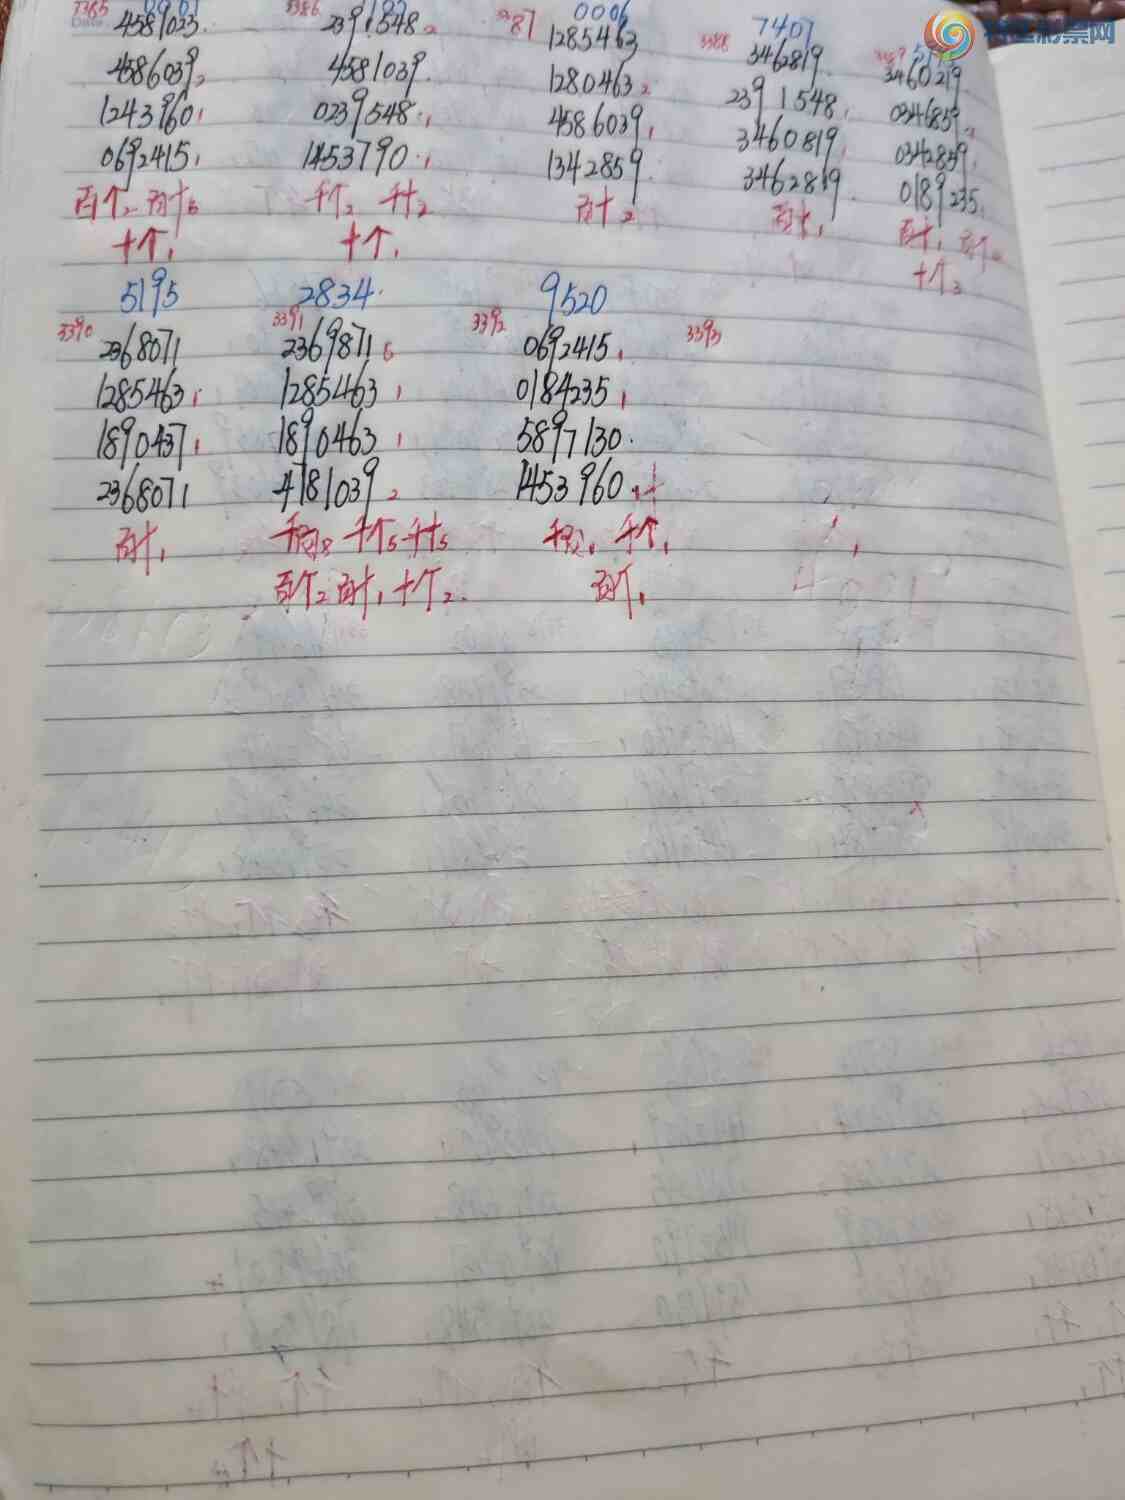 3385
4581023.
4586039₂
1243960₁
0692415₁
百个₂ 百十₆
十个₁
3386
2391548₂
4581039.
0239548.₁
1453790.₁
千个₂ 千十₂
十个₁
87 0006
1285463
1280463₂
4586039₁
1342859.
百十₂
3388 7407
3462819.
2391548₁
3460819₁
3462819
百十₁
3460219.
0346859
0342859₁
0189235₁
百十₁ 百个
十个₃
5195
3390 2368071
1285463₁
1890437₁
2368071
百十₁
2834.
3391 2369871₆
1285463₁
1890463₁
4781039₂
千百₈ 千个₅ 千十₅
百个₂ 百十₁ 十个₂.
9520
3392 0692415₁
0184235₁
5897130.
1453960.
千百₁ 千个₁
百个₁
3393
彩票网